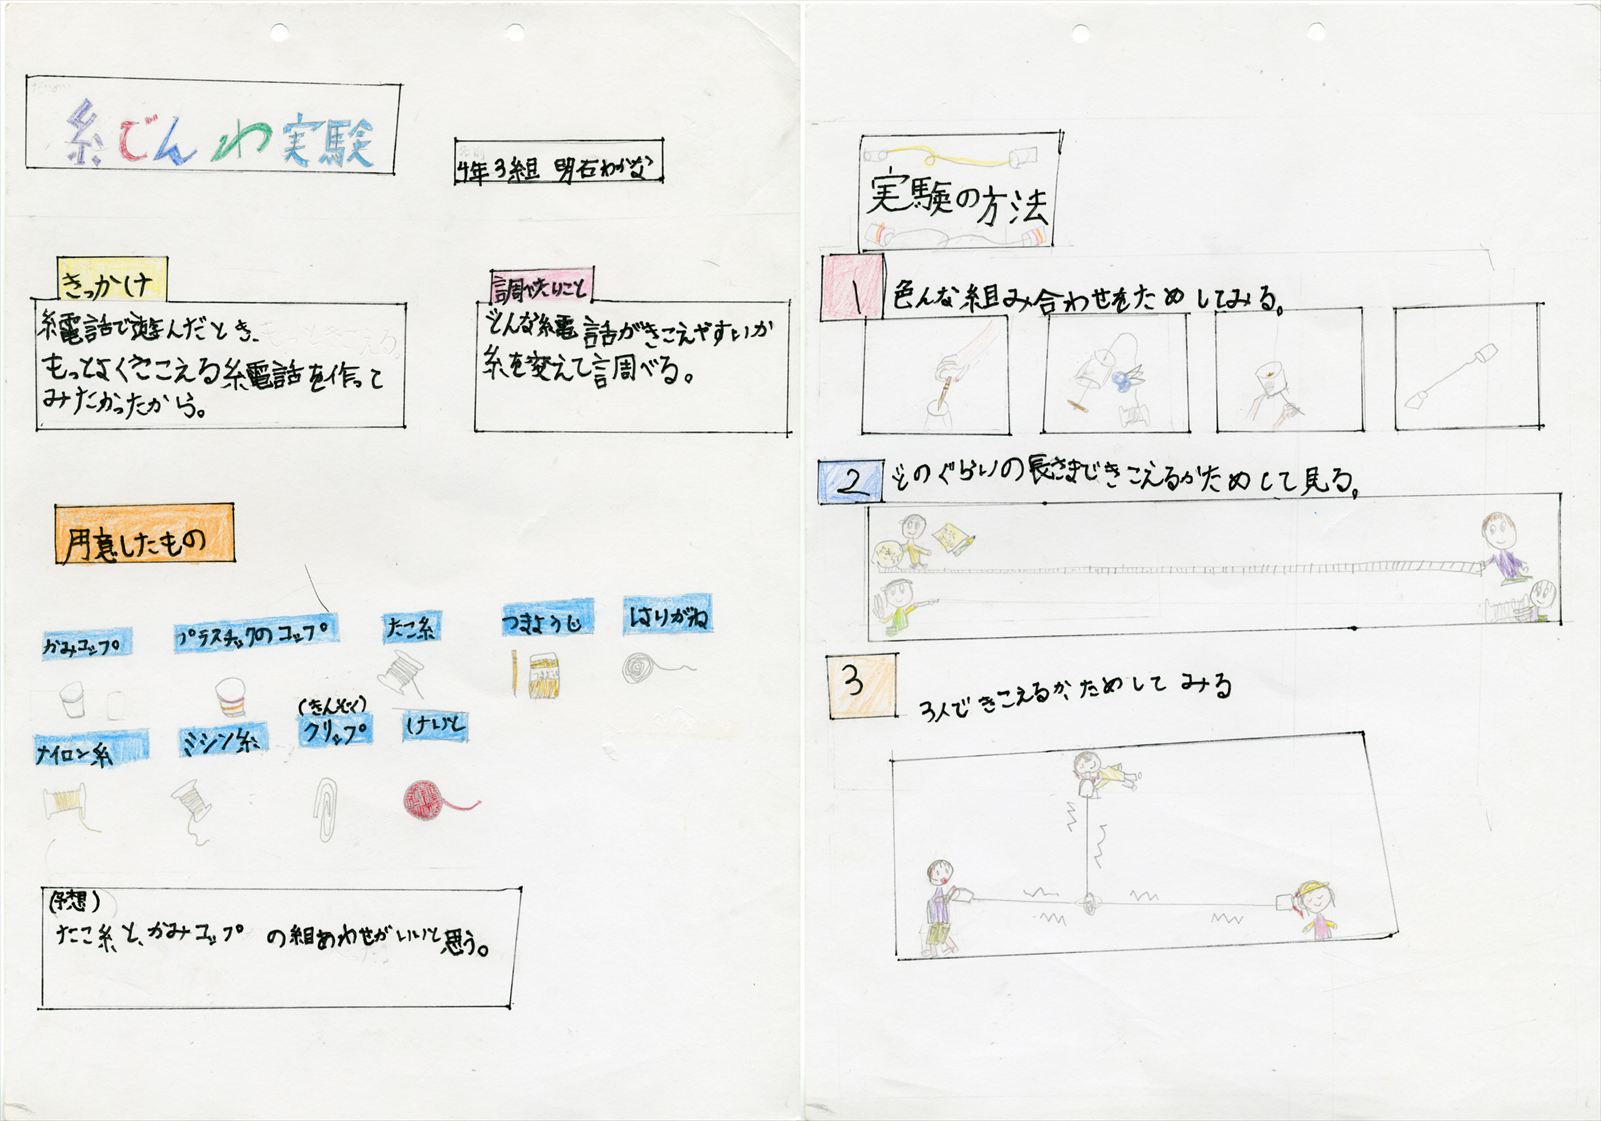 糸でんわ実験
4年3組 明石わかな
きっかけ
糸電話で遊んだとき、
もっとよくきこえる糸電話を作って
みたかったから。
調べたいこと
どんな糸電話がきこえやすいか
糸を変えて調べる。
用意したもの
かみコップ
プラスチックのコップ
たこ糸
つまようじ
はりがね
ナイロン糸
ミシン糸
(きんぞく)
クリップ
けいと
(予想)
たこ糸と、かみコップ の組あわせがいいと思う。
実験の方法
1 色んな組み合わせをためしてみる。
2 どのぐらいの長さまできこえるかためして見る。
3 3人できこえるか、ためしてみる